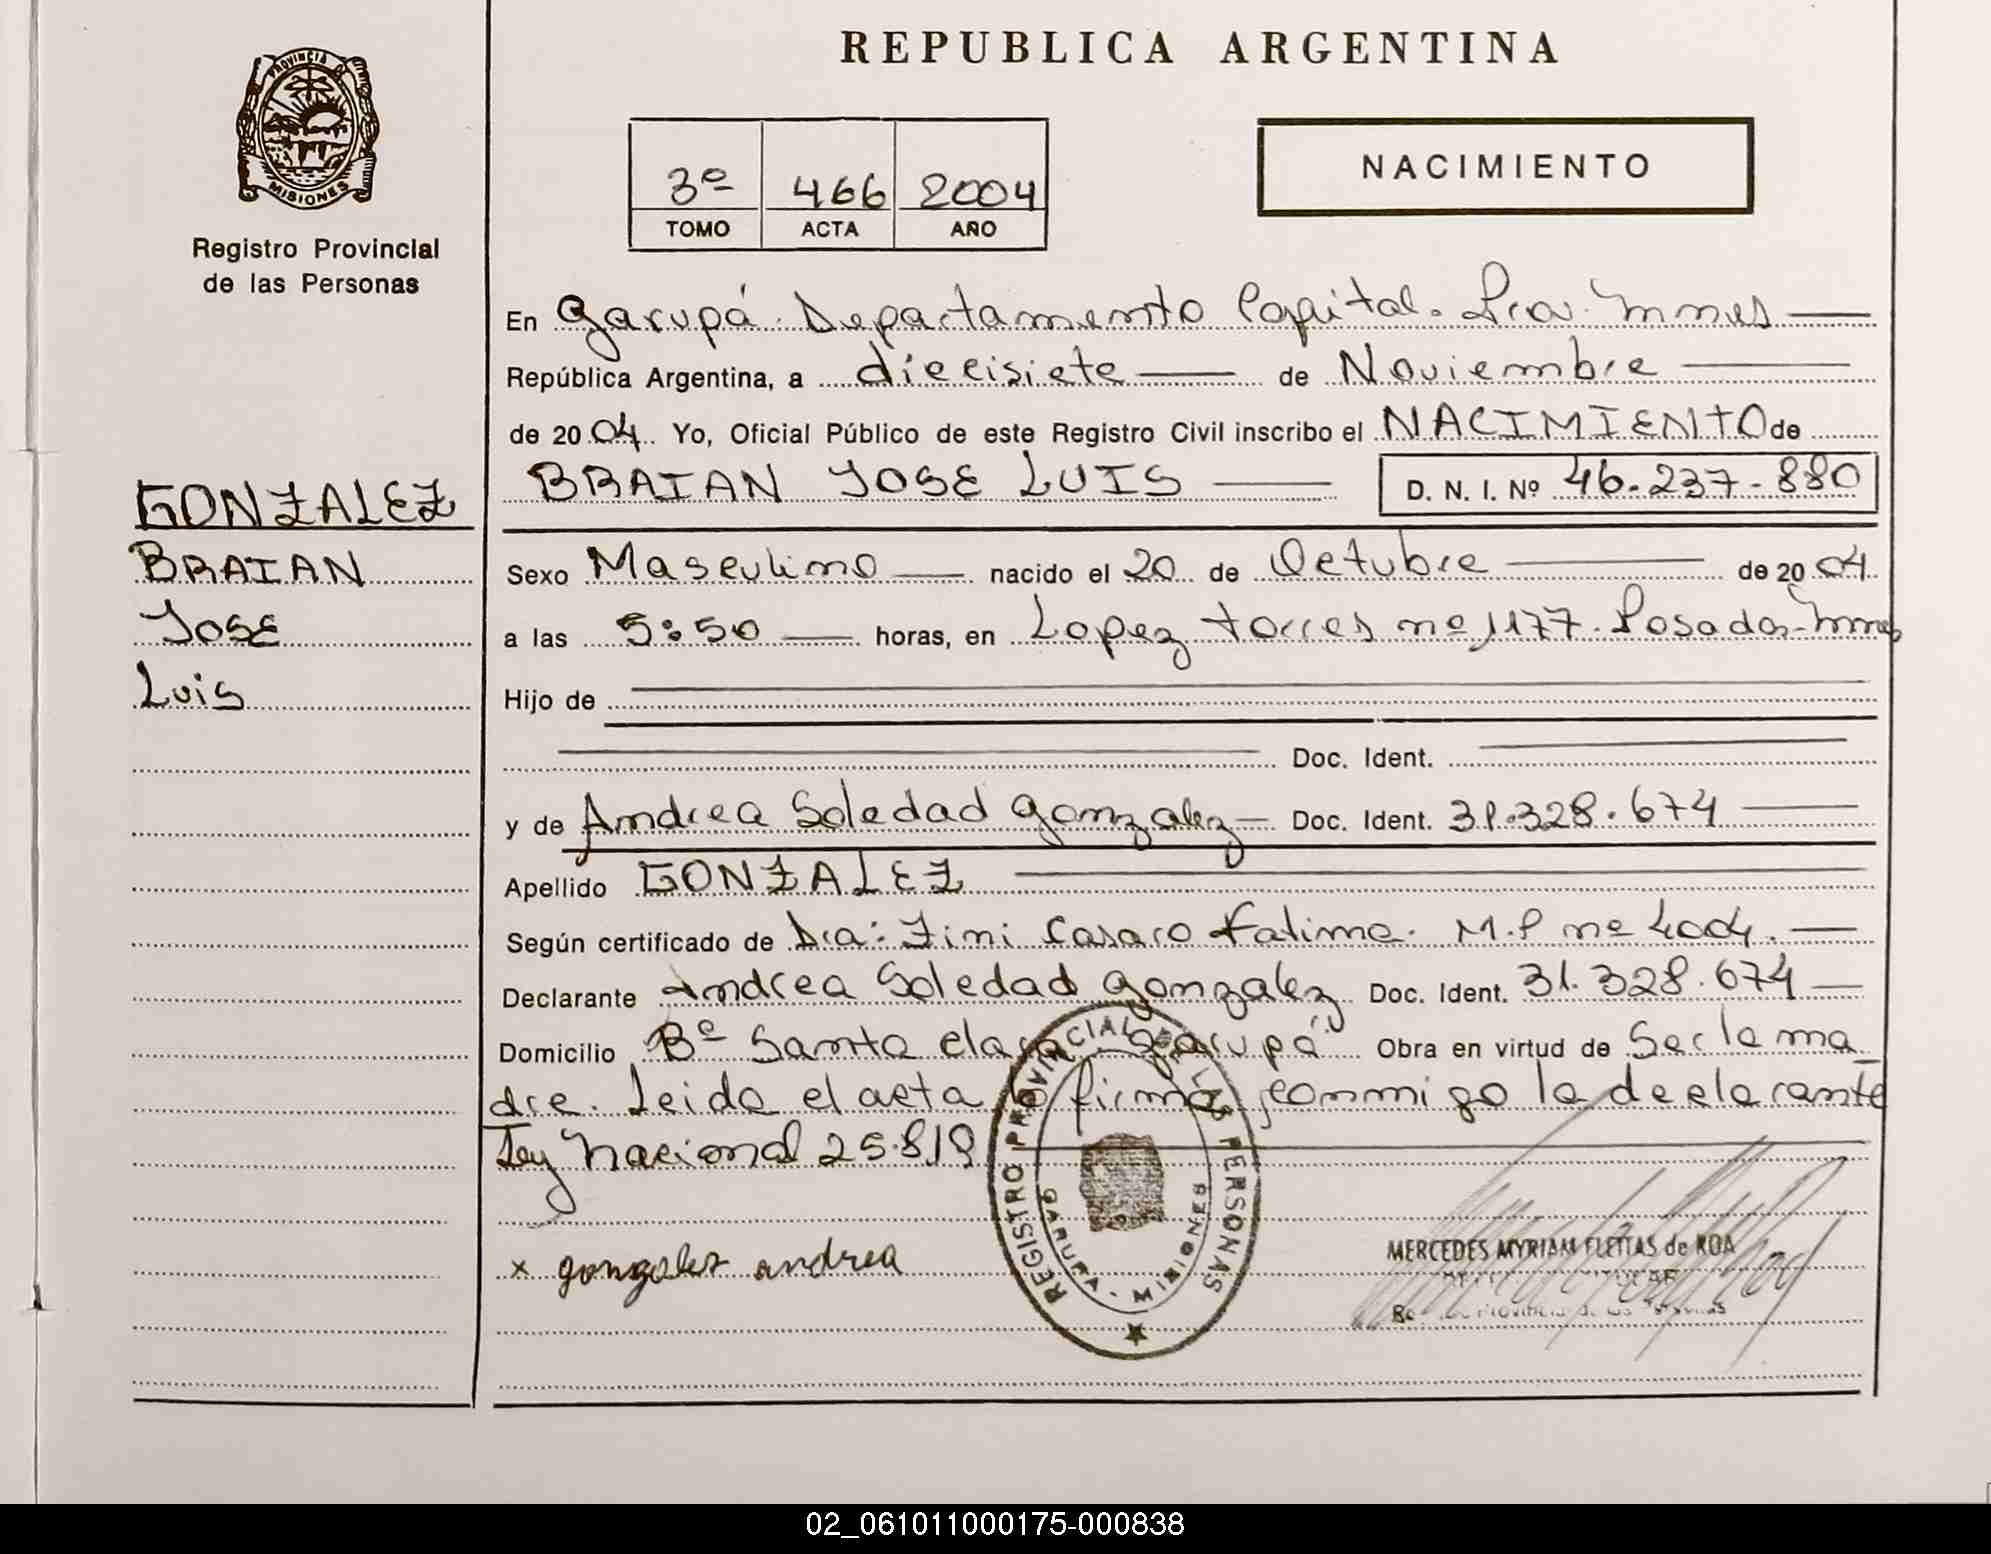 REPUBLICA ARGENTINA
PROVINCIA DE
MISIONES
Registro Provincial
de las Personas
3º 466 2004
TOMO ACTA AÑO
NACIMIENTO
En Garupá. Departamento Capital. Pcia. Mnes
República Argentina, a diecisiete de Noviembre
de 2004. Yo, Oficial Público de este Registro Civil inscribo el NACIMIENTO de
BRAIAN JOSE LUIS D. N. I. Nº 46.237.880
GONZALEZ
BRAIAN
JOSE
Luis
Sexo Masculino nacido el 20 de Octubre de 2004
a las 5:50 horas, en Lopez torres nº 1177. Posadas-Mnes
Hijo de
Doc. Ident.
y de Andrea Soledad Gonzalez Doc. Ident. 31.328.674
Apellido GONZALEZ
Según certificado de Dra: Zini Fatima. M.P nº 4004.
Declarante Andrea Soledad Gonzalez Doc. Ident. 31.328.674
Domicilio Bº Santa clara Garupá Obra en virtud de Ser la ma
dre. Leida el acta la firma conmigo la declarante
Ley Nacional 25.819
x gonzalez andrea
REGISTRO PROVINCIAL DE LAS PERSONAS
GARUPA - MISIONES
MERCEDES MYRIAM FLEITAS de ROA
02_061011000175-000838